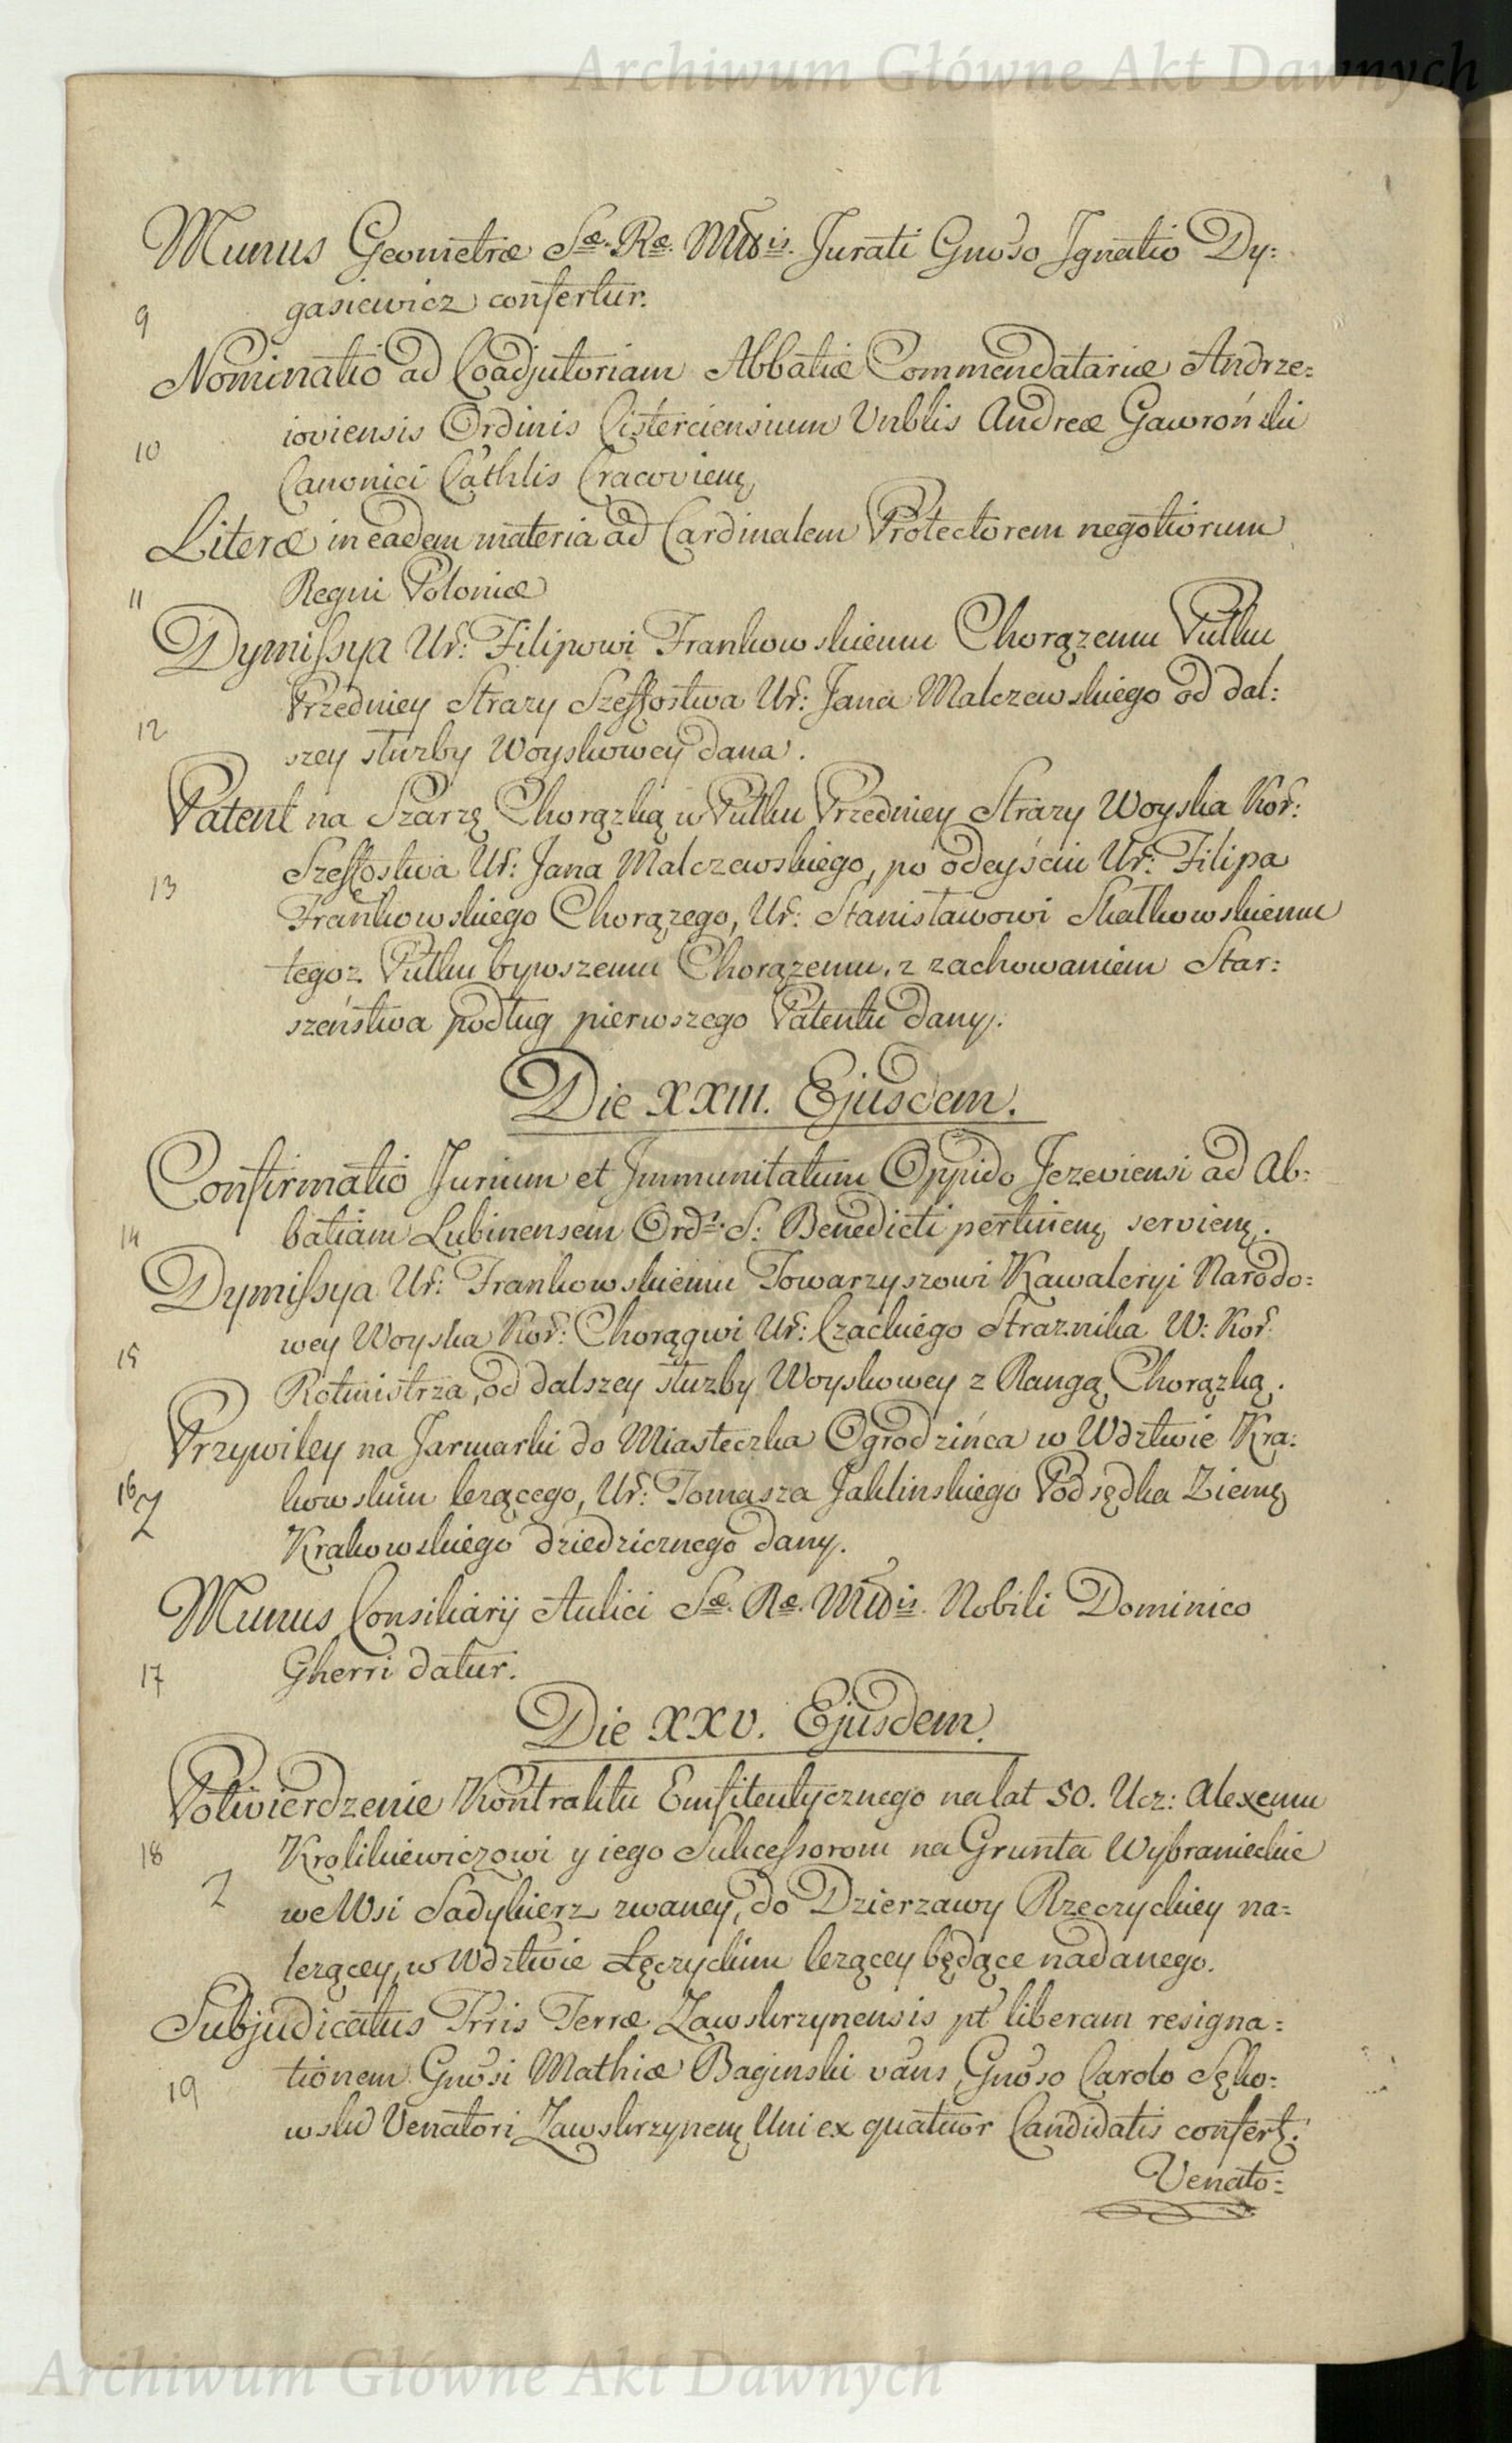 Archiwum Główne Akt Dawnych
Munus Geometræ Sæ. Ræ. Mttis. Jurati Gnoso Ignatio Dy:
9 gasiewicz confertur.
Nominatio ad Coadjutoriam Abbatiæ Commendatariæ Andrze:
ioviensis Ordinis Cisterciensium Vnblis Andreæ Gawroński
10
Canonici Cathlis Cracovien
Literæ in eadem materia ad Cardinalem Protectorem negotiorum
11 Regni Poloniæ
Dymissya Ur: Filipowi Frankowskiemu Chorązemu Pułku
Przedniey Strazy Szeffostwa Ur: Jana Malczewskiego od dal:
12
szey służby Woyskowey dana.
Patent na Szarzę Chorązką w Pułku Przedniey Strazy Woyska Kor:
Szeffostwa Ur: Jana Malczewskiego, po odeyściu Ur: Filipa
13
Frankowskiego Chorązego, Ur: Stanisławowi Skałkowskiemu
tegoz Pułku bywszemu Chorązemu, z zachowaniem Star:
szeństwa podług pierwszego Patentu dany.
Die XXIII. Ejusdem.
Confirmatio Jurium et Immunitatum Oppido Jezeviensi ad Ab:
14 batiam Lubinensem Ord: S: Benedicti pertinen servien.
Dymissya Ur: Frankowskiemu Towarzyszowi Kawaleryi Narodo:
wey Woyska Kor: Chorągwi Ur: Czackiego Straznika W: Kor:
15
Rotmistrza, od dalszey służby Woyskowey z Rangą Chorązką.
Przywiley na Jarmarki do Miasteczka Ogrodzińca w Wdztwie Kra:
16 kowskim lezącego, Ur: Tomasza Jaklinskiego Podsędka Ziem
Krakowskiego dziedzicznego dany.
Munus Consiliarij Aulici Sæ. Ræ. Mttis. Nobili Dominico
17 Gherri datur.
Die XXV. Ejusdem.
Potwierdzenie Kontraktu Emfiteutycznego na lat 50. Ucz: Alexemu
18 Krolikiewiczowi y iego Sukcessorom na Grunta Wybranieckie
we Wsi Sadykierz zwaney, do Dzierzawy Rzeczyckiey na=
lezącey, w Wdztwie Łęczyckim lezącey będące nadanego.
Subjudicatus Trris Terræ Zawskrzynensis pt liberam resigna:
19 tionem Gnosi Mathiæ Baginski vans Gnoso Carolo Sęko:
wski Venatori Zawskrzynen Uni ex quatuor Candidatis confert.
Venato:
Archiwum Główne Akt Dawnych